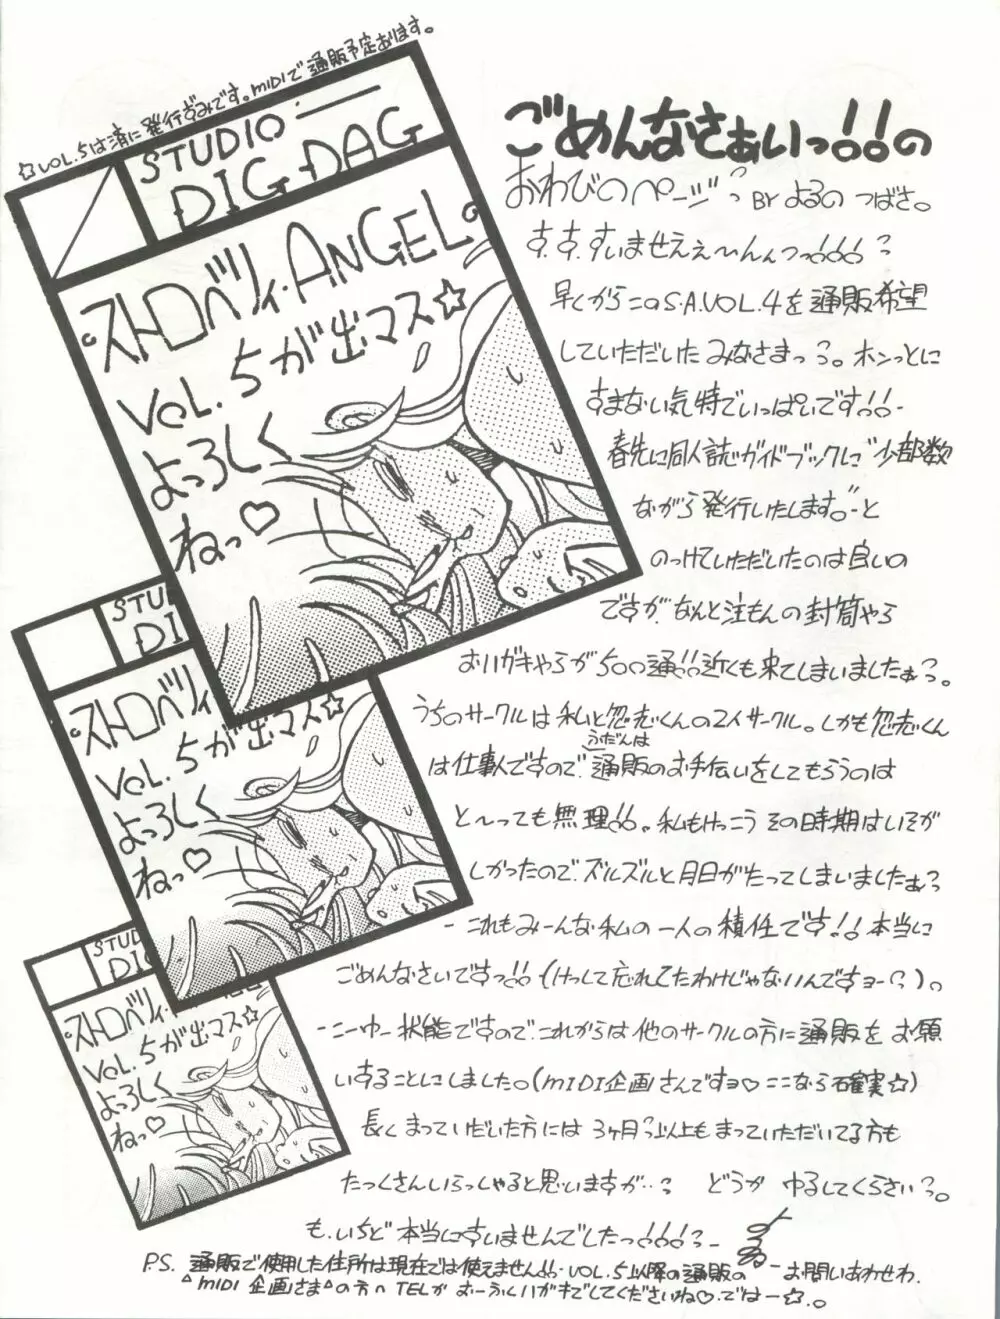 ☆VOL.5は済に発行ずみです。MIDIで通販予定あります。
STUDIO
DIG DAG
ストロベリィ・ANGEL
VOL.5が出マス☆
よろしく
ねっ♡
STU
DI
ストロベリィ
VOL.5が出マス☆
よろしく
ねっ♡
STUD
DI
ストロベリィ・
VOL.5が出マス☆
よろしく
ねっ♡
ごめんなさぁいっ!!の
おわびのページ BY よるの つばさ。
す、す、すいませえぇ〜んんっっ!!!
早くからこのS.A.VOL.4を通販希望
していただいたみなさまっ。ホンっとに
すまない気持でいっぱいです!!
春先に同人誌ガイドブックに“少部数
ながら発行いたします。”と
のっけていただいたのは良いの
ですが、なんと注もんの封筒やら
おハガキやらが500通!!近くも来てしまいましたぁっ。
うちのサークルは私と怨恋くんの2人サークル。しかも怨恋くん
ふだんは
は仕事人ですので、通販のお手伝いをしてもらうのは
と〜っても無理!!。私もけっこうその時期はいそが
しかったので、ズルズルと月日がたってしまいましたぁっ
これもみーんな私の一人の積任です!!本当に
ごめんなさいですっ!!(けっして忘れてたわけじゃないんですョー)。
こーゆー状態ですので、これからは他のサークルの方に通販をお願
いすることにしました。(MIDI企画さんですョ♡ここなら確実☆)
長くまっていだいた方には3ヶ月以上もまっていただいてる方も
たくさんいらっしゃると思いますが…。どうかゆるしてくらさいっ。
も、いちど本当にすいませんでしたっ!!!!
P.S. 通販で使用した住所は現在では使えません!!。VOL.5以降の通販の
お問いあわせわ、
“MIDI企画さま”の方へTELか おーふくハガキでしてくださいね♡。ではー☆。